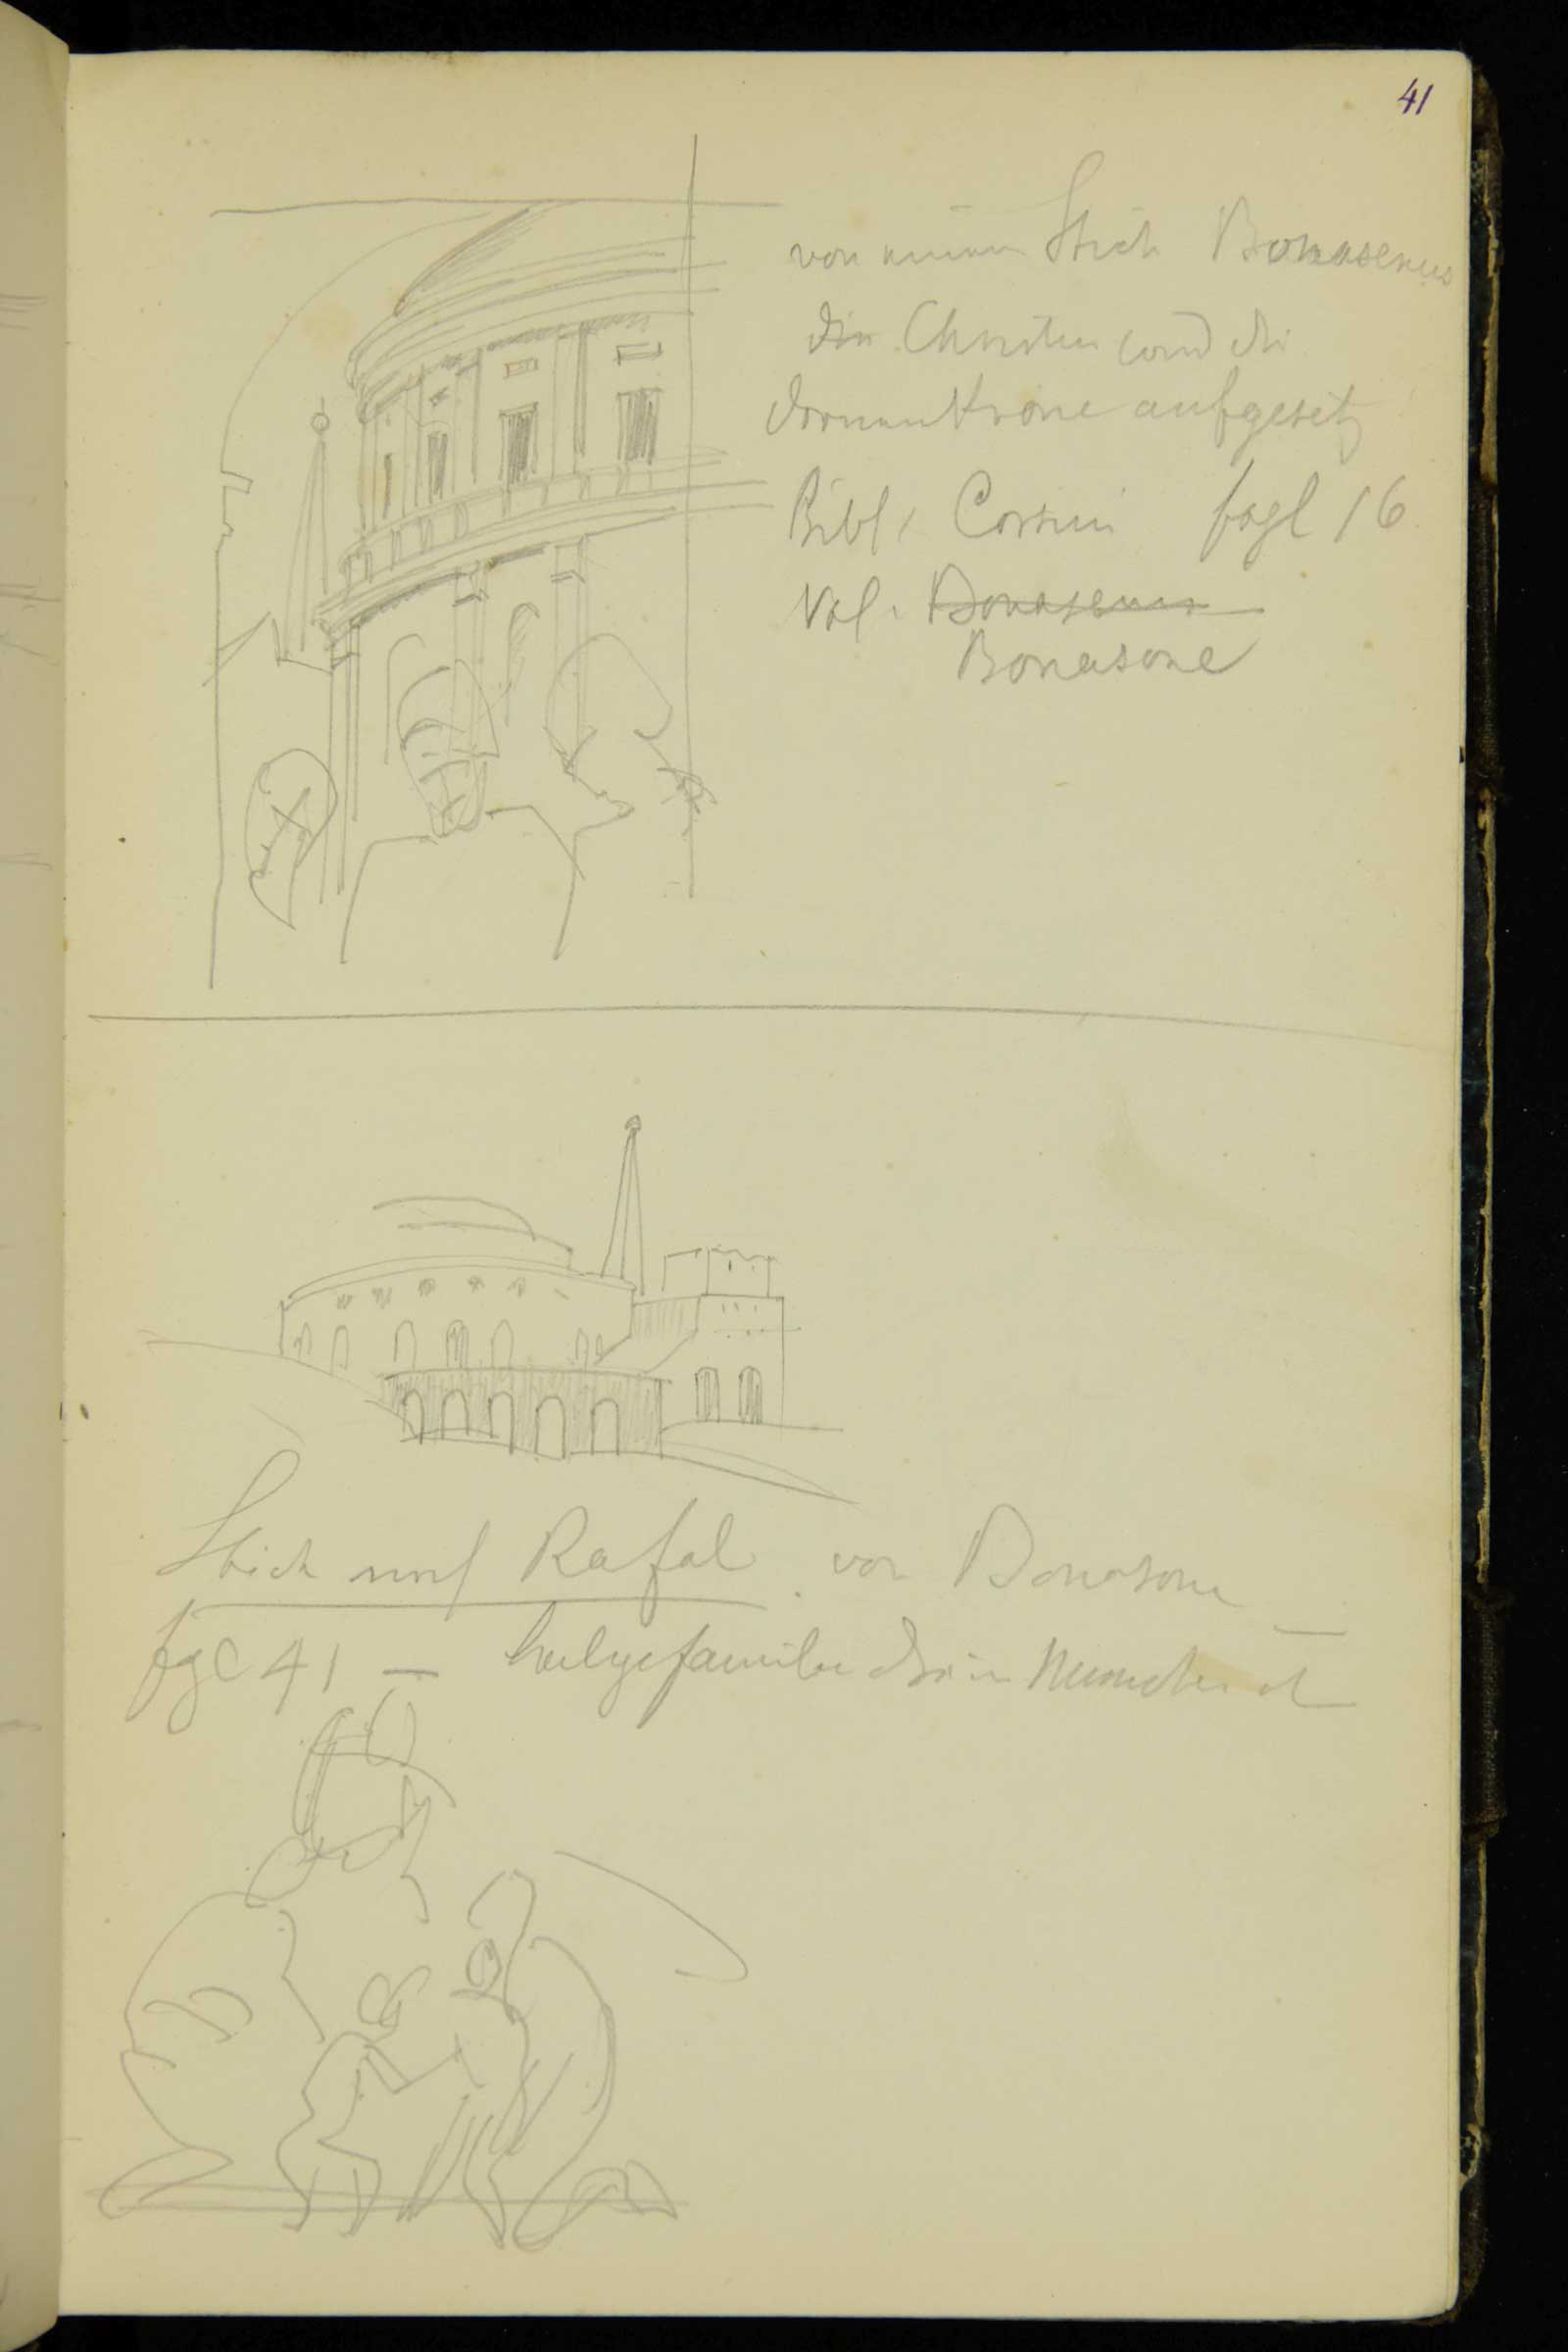 41
von einem Stich Bonasenus
den Christen wird die
dornenkrone aufgesetz
Bibl, Corsini fogl 16
Vol. Bonasenus
Bonasone
Stich nach Rafal. von Bonasone
fgl 41 — heilgefamilie die in Munchen ist